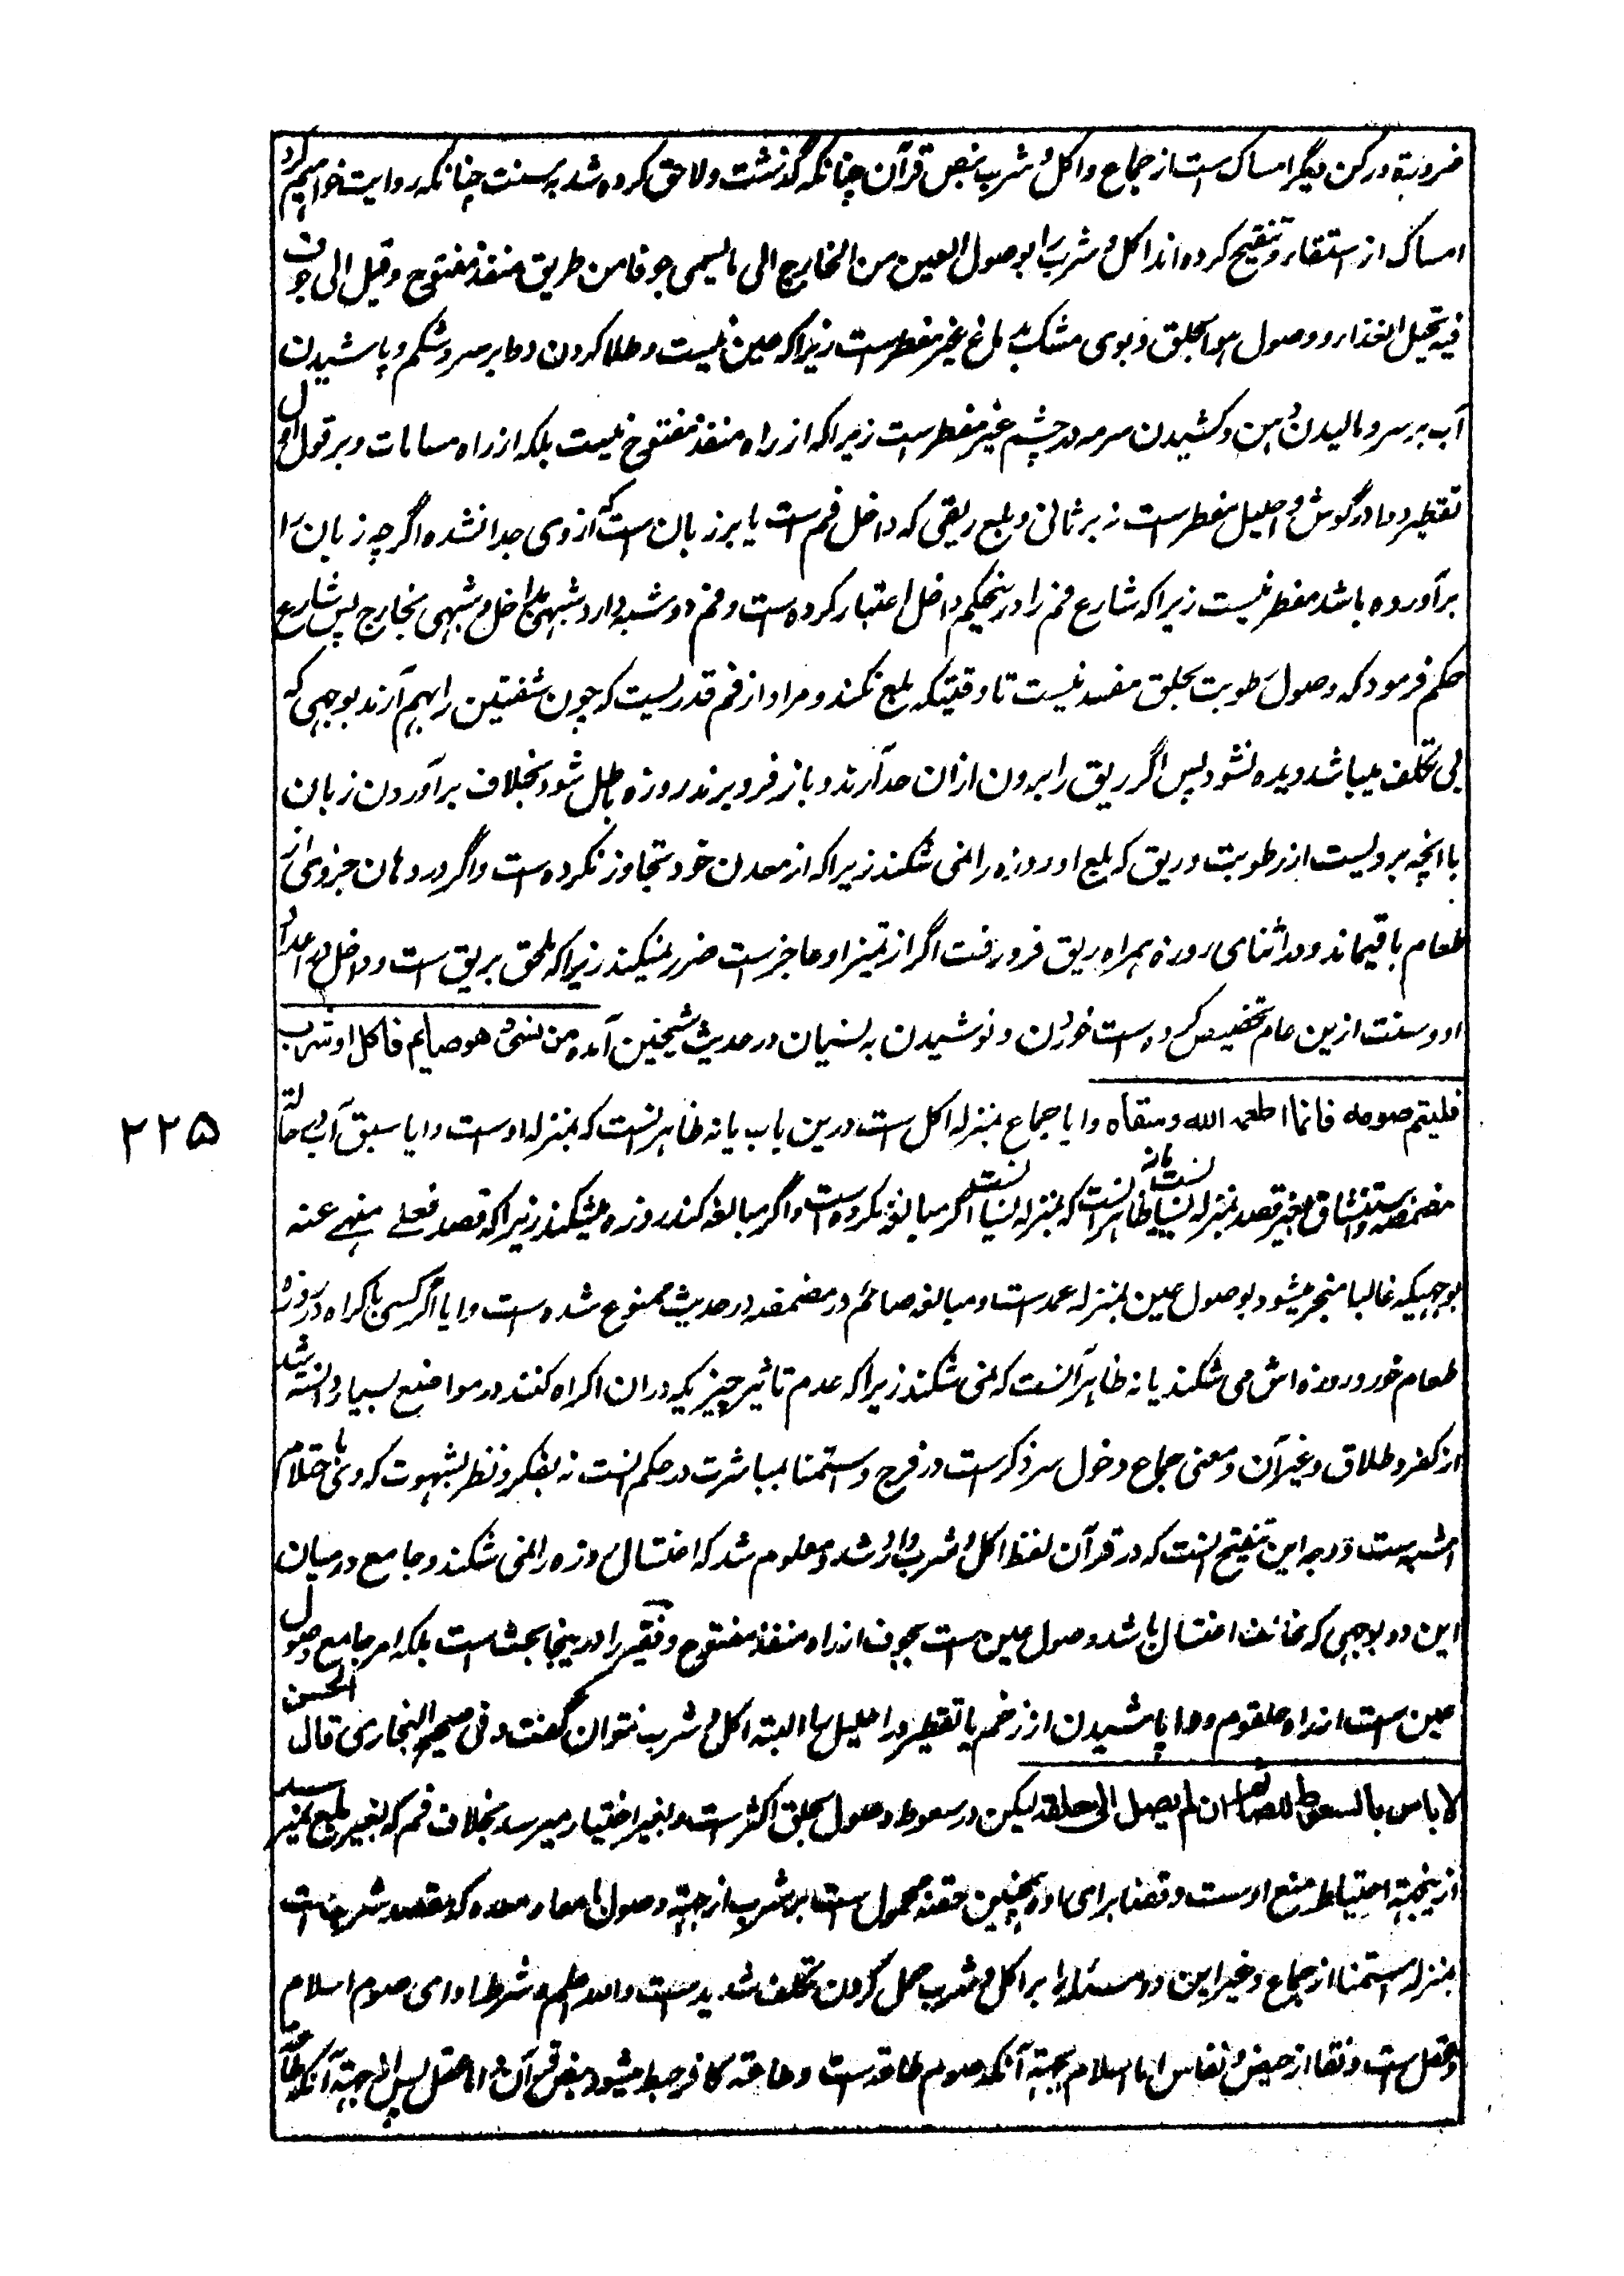 ضرورة ورکن دیگر امساک ست از جماع و اکل و شرب بنص قرآن چنانکه گذشت و لاحق کرده شد به سنت چنانکه روایت خواهیم کرد
امساک از استقاء و تنقیح کرده اند اکل و شرب را بوصول العین من الخارج الی ما یسمی جوفا من طریق منفذ مفتوح و قیل الی جوف
فیه تحیل الغذاء و وصول هوا بحلق و بوی مشک بدماغ غیر مفطرست زیراکه عین نیست و طلا کردن دوا بر سر و شکم و پاشیدن
آب بر سر و مالیدن دهن و کشیدن سرمه در چشم غیر مفطرست زیراکه از راه منفذ مفتوح نیست بلکه از راه مسامات و بر قول اول
تقطیر دوا در گوش و احلیل مفطرست نه بر ثانی و بلع ریقی که داخل فم ست یا بر زبان ست که از وی جدا نشده اگرچه زبان را
برآورده باشد مفطر نیست زیراکه شارع فم را درینحکم داخل اعتبار کرده ست و فم دو شبه دارد شبهی بداخل و شبهی بخارج پس شارع
حکم فرمود که وصول رطوبت بحلق مفسد نیست تا وقتیکه بلع نکند و مراد از فم قدریست که چون شفتین را بهم آرند بوجهی که
بی تکلف میباشد دیده نشود پس اگر ریق را برون ازان حد آرند و باز فرو برند روزه باطل شود بخلاف برآوردن زبان
با آنچه برویست از رطوبت و ریق که بلع او روزه را نمی شکند زیراکه از معدن خود تجاوز نکرده ست و اگر در دهان جزوی از
طعام باقیماند و در اثنای روزه همراه ریق فرو رفت اگر از تمیز او عاجزست ضرر نمیکند زیراکه ملحق بریق ست و داخل در اعداد
او و سنت ازین عام تخصیص کرده ست خوردن و نوشیدن به نسیان در حدیث شیخین آمده من نسی و هو صایم فاکل او شرب
فلیتم صومه فانما اطعمه الله و سقاه و ایا جماع بمنزله اکل ست درین باب یا نه ظاهر آنست که بمنزله اوست و ایا سبق آب در حالة
مضمضه و استنشاق بغیر قصد بمنزله نسیانست یا نه ظاهر آنست که بمنزله نسیانست اگر مبالغه نکرده ست و اگر مبالغه کند روزه میشکند زیراکه قصد فعلی منهی عنه
بوجهیکه غالبا منجر میشود بوصول عین بمنزله عمدست و مبالغه صائم در مضمضه در حدیث ممنوع شده ست و ایا اگر کسی باکراه در روزه
طعام خورد روزه اش می شکند یا نه ظاهر آنست که نمی شکند زیراکه عدم تاثیر چیزیکه دران اکراه کنند در مواضع بسیار دانسته شد
از کفر و طلاق و غیر آن و معنی جماع دخول سر ذکرست در فرج و استمنا بمباشرت در حکم آنست نه بفکر و نظر بشهوت که وی باحتلام
اشبه ست و وجه این تنقیح آنست که در قرآن لفظ اکل و شرب وارد شد و معلوم شد که اغتسال روزه را نمی شکند و جامع درمیان
این دو بوجهی که مخالف اغتسال باشد وصول عین ست بجوف از راه منفذ مفتوح و فقیر را درینجا بحث است بلکه امر جامع وصول
عین ست از راه حلقوم و دوا پاشیدن از زخم یا تقطیر در احلیل را البته اکل و شرب نتوان گفت و فی صحیح البخاری قال الحسن
لا باس بالسعوط للصائم ان لم یصل الی حلقه لیکن در سعوط وصول بحلق اکثرست و بغیر اختیار میرسد بخلاف فم که بغیر بلع نمیرسد
ازینجهة احتیاط منع اوست و قضا برای او و همچنین حقنه محمول ست بر شرب از جهة وصول بامعا و معده که مقصد شرب است
بمنزله استمنا از جماع و غیر این دو مسئله را بر اکل و شرب حمل کردن تکلف شدیدست والله اعلم و شرط ادای صوم اسلام
و عقل ست و نقا از حیض و نفاس اما اسلام بجهة آنکه صوم طاعة ست و طاعة کافر حبط میشود بنص قرآن و اما عقل پس از جهة آنکه
۲۲۵